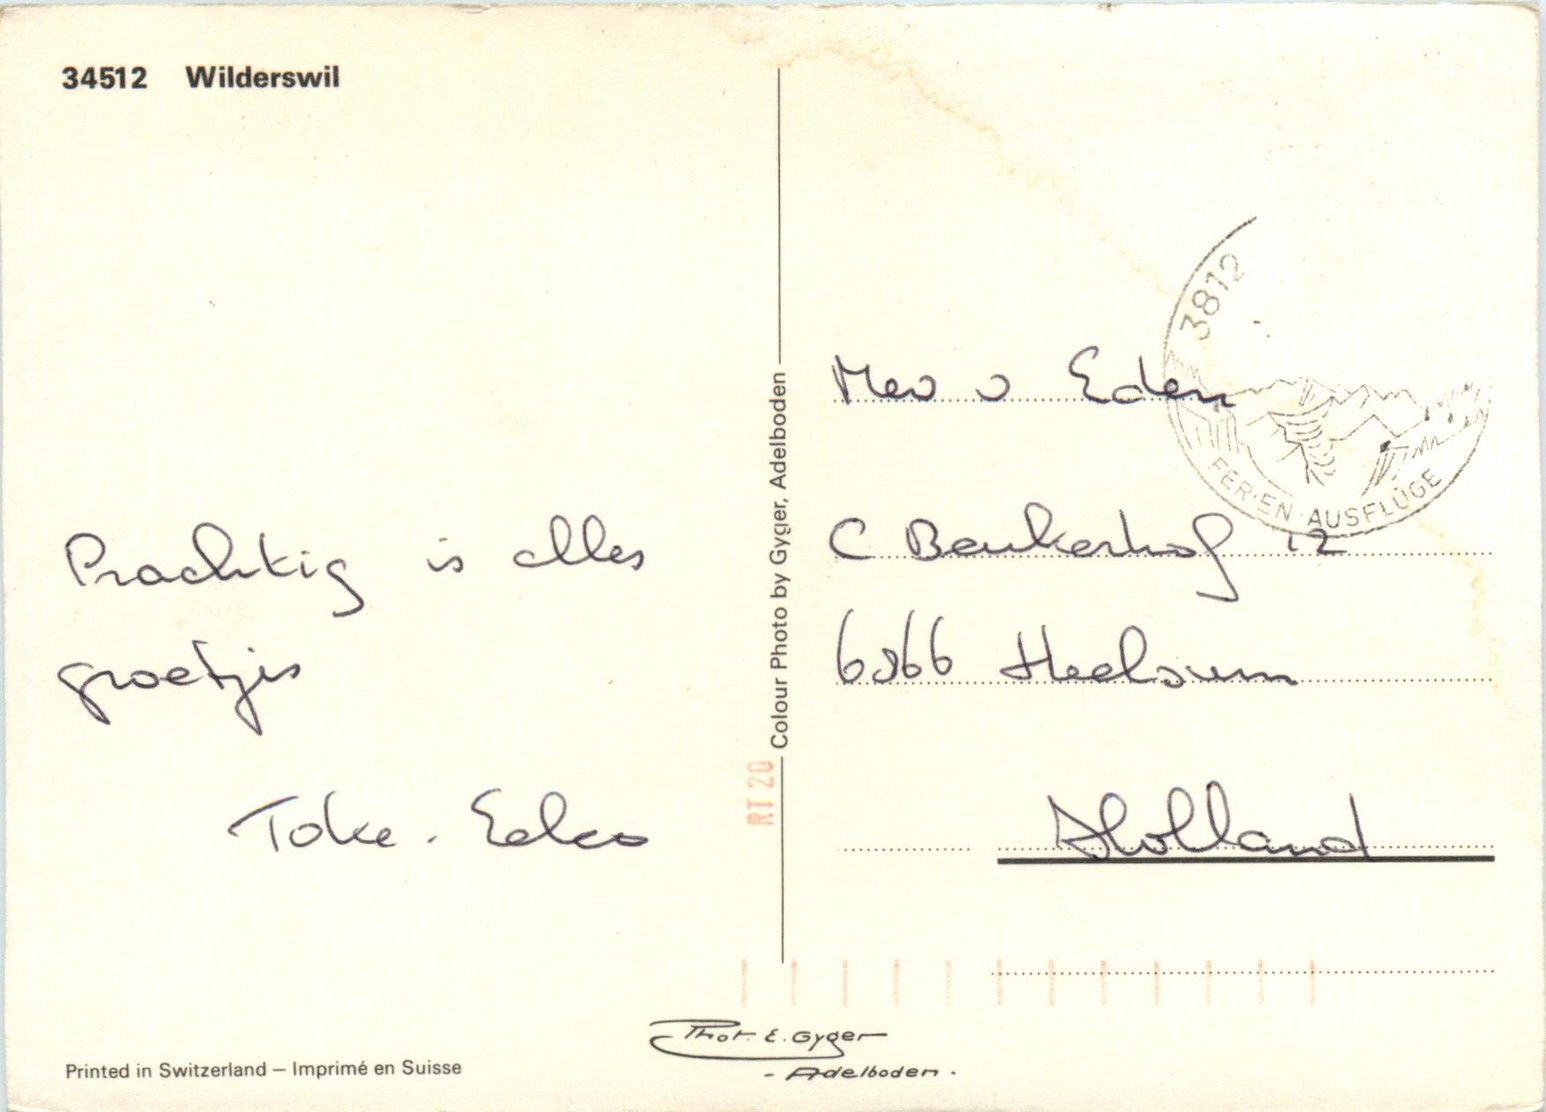 34512 Wilderswil
Prachtig is alles
groetjes
Toke. Eelco
Printed in Switzerland – Imprimé en Suisse
Colour Photo by Gyger, Adelboden
RT 20
Phot. E. Gyger
- Adelboden -
3812
FERIEN · AUSFLÜGE
Mev v Eden
C Beukerhof 12
6866 Heelsum
Holland